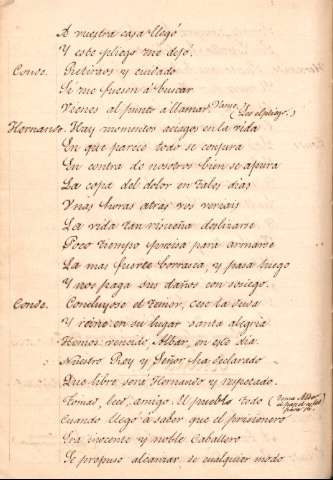 A nuestra casa llegó
Y este pliego me dejó.
Conde. Retiraos y cuidado
Si me fuesen á buscar
Vienes al punto á llamar. (Vanse.) (Lee el pliego.)
Hernando. Hay momentos aciagos en la vida
En que parece todo se conjura
En contra de nosotros bien se apura
La copa del dolor en tales dias
Unas horas atras vos veriais
La vida tan risueña deslizarse
Poco tiempo precisa para armarse
La mas fuerte borrasca, y pasa luego
Y nos paga sus daños con sosiego.
Conde. Concluyose el temor, cese la duda
Y reine en su lugar santa alegria
Hemos vencido, Albar, en este dia
Nuestro Rey y Señor ha declarado
Que libre será Hernando y respetado.
Tomad, leed, amigo. El pueblo todo (Toma Albar el papel
Cuando llegó á saber que el prisionero
Era inocente y noble Caballero
Se propuso alcanzar, de cualquier modo